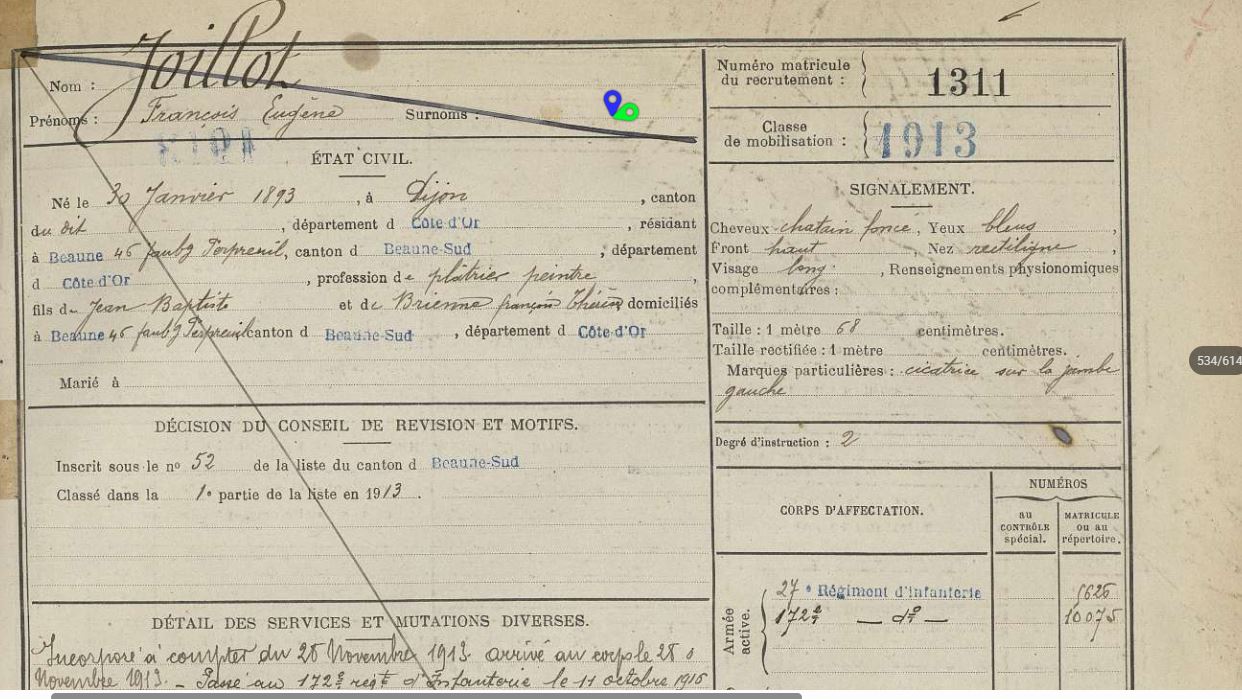 Joillot
Nom :
Prénoms : François Eugène Surnoms :
ÉTAT CIVIL.
Né le 30 Janvier 1893, à Dijon, canton
du dit, département d Côte-d'Or, résidant
à Beaune 45 faubg Perpreuil, canton d Beaune-Sud, département
d Côte-d'Or, profession de plâtrier peintre,
fils de Jean Baptiste et de Brienne françoise Thérèse domiciliés
à Beaune 45 faubg Perpreuil canton d Beaune-Sud, département d Côte-d'Or
Marié à
DÉCISION DU CONSEIL DE REVISION ET MOTIFS.
Inscrit sous le nº 52 de la liste du canton d Beaune-Sud
Classé dans la 1e partie de la liste en 1913.
DÉTAIL DES SERVICES ET MUTATIONS DIVERSES.
Incorporé à compter du 28 Novembre 1913. arrivé au corps le 28
Novembre 1913. _ Passé au 172e régt d'Infanterie le 11 octobre 1916
Numéro matricule
du recrutement : 1311
Classe
de mobilisation : 1913
SIGNALEMENT.
Cheveux chatain foncé, Yeux bleus,
Front haut, Nez rectiligne,
Visage long, Renseignements physionomiques
complémentaires :
Taille : 1 mètre 68 centimètres.
Taille rectifiée : 1 mètre centimètres.
Marques particulières : cicatrice sur la jambe
gauche
Degré d'instruction : 2
CORPS D'AFFECTATION.
NUMÉROS
au
CONTRÔLE
spécial.
MATRICULE
ou au
répertoire.
Armée
active.
27e Régiment d'infanterie 6626
172e _ do _ 10075
534/614